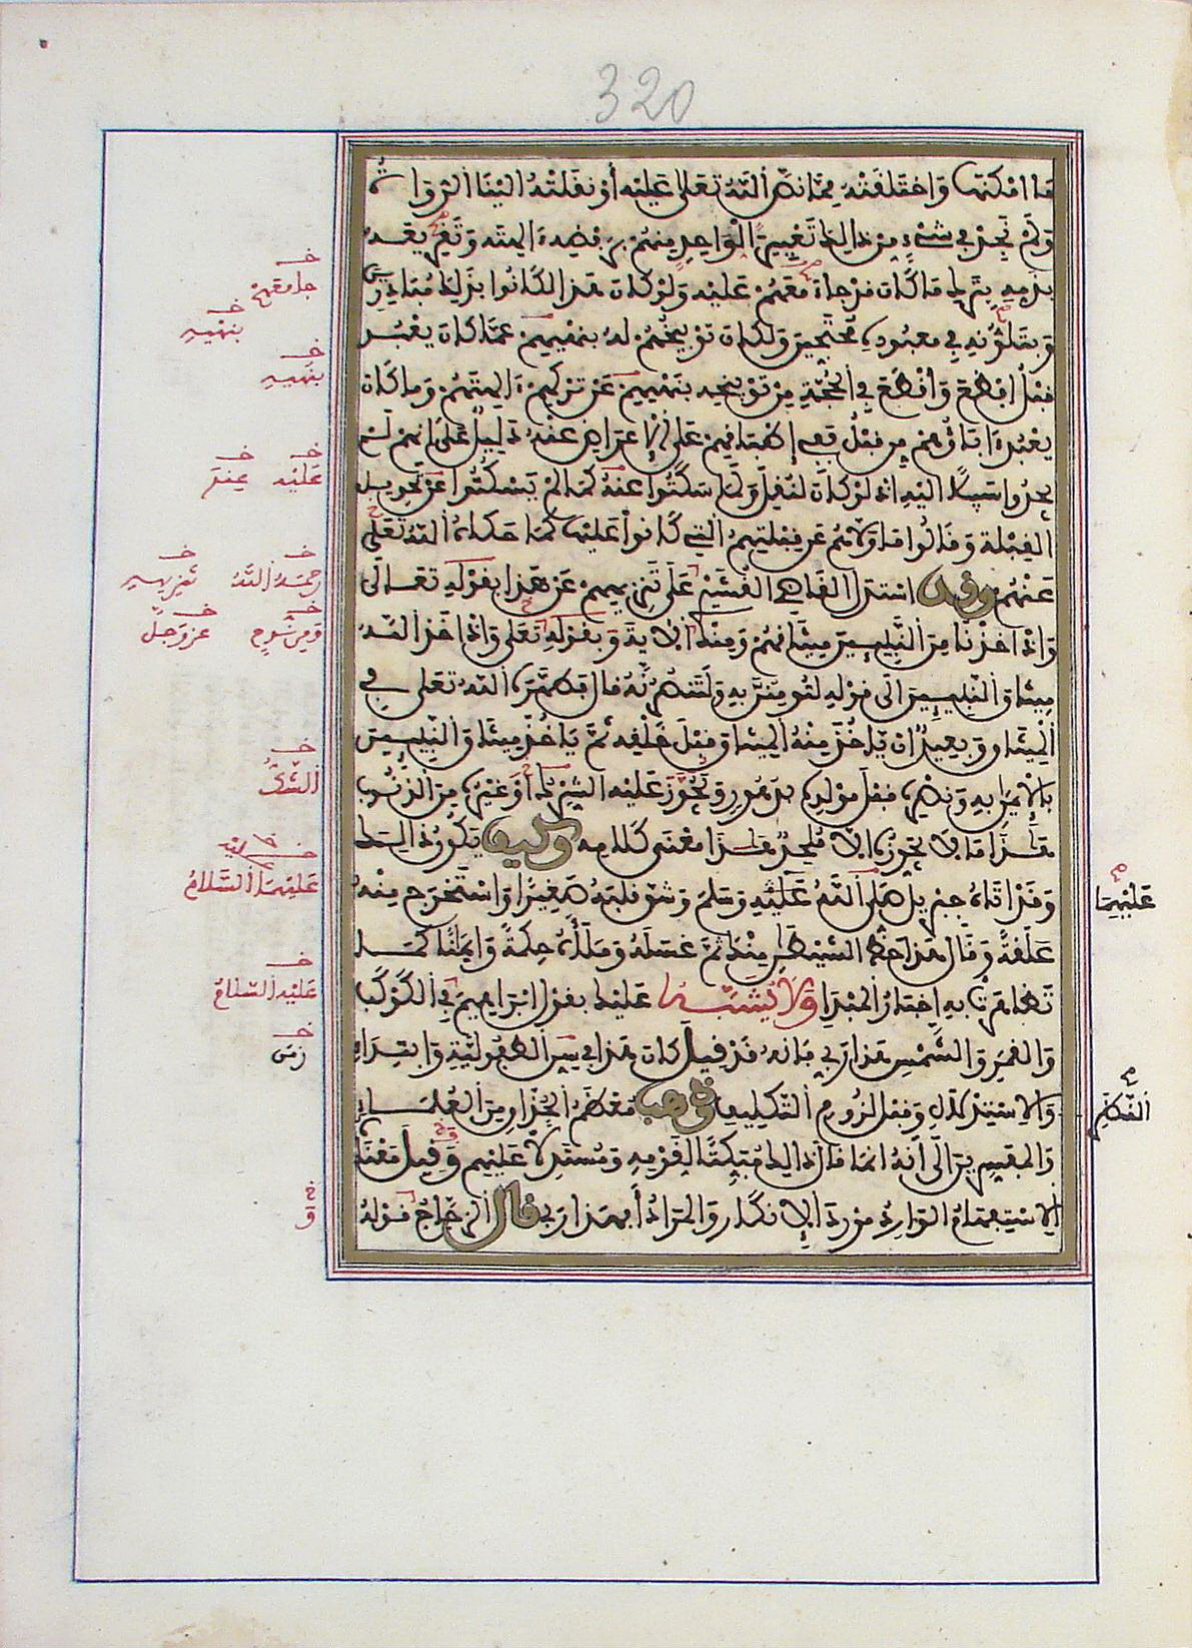 320
ما امكنها واختلفته مما نص الله تعلى عليه أو نقلته الينا الرواة
ولم نجد في شيء من ذالك تعييرا لواحد منهم برفضه ءالهته وتقريعه
بذمه بترك ما كان قد جامعهم عليه ولو كان هذا لكانوا بذلك مبادرين
وبتلونه في معبوده محتجين ولكان توبيخهم له بنهيهم عما كان يعبد
قبل افظع وأقطع في الحجة من توبيخه بنهيهم عن تركهم ءالهتهم وما كان
يعبد ءاباؤهم من قبل ففي إطباقهم على الإعراض عنه دليل على انهم لم
يجدوا سبيلا اليه اذ لو كان لنقل ولما سكتوا عنه كما لم يسكتوا عن تحويل
القبلة وقالوا ما ولاهم عن قبلتهم التي كانوا عليها كما حكاه الله تعلى
عنهم وقد استدل القاضي القشيري على تنزيههم عن هذا بقوله تعالى
واذ اخذنا من النبيين ميثاقهم ومنك الاية وبقوله تعلى واذ اخذ الله
ميثاق النبيين الى قوله لتومنن به ولتنصرنه قال فطهره الله تعلى في
الميثاق وبعيد ان ياخذ منه الميثاق قبل خلقه ثم ياخذ ميثاق النبيين
بالايمن به ونصره قبل مولده بدهور ويجوز عليه الشرك أو غيره من الذنوب
هذا ما لا يجوزه الا ملحد هذا معنى كلامه وكيف يكون ذالك
وقد اتاه جبريل صلى الله عليه وسلم وشق قلبه صغيرا واستخرج منه
علقة وقال هذا حظ الشيطن منك ثم غسله وملأه حكمة وايمنا كما
تظاهرت به اخبار المبدإ ولا يشبه عليك بقول ابراهيم في الكوكب
والقمر والشمس هذا ربي فانه قد قيل كان هذا في سن الطفولية وابتداء
والاستدلال وقبل لزوم التكليف وذهب معظم الحذاق من العلماء
والمفسرين الى أنه انما قال ذالك مبكتا لقومه ومستدلا عليهم وقيل معناه
الاستفهام الوارد مورد الانكار والمراد أبهذا ربي قال الزجاج قوله
جامعهم
بنهيه
بنهيه
عليه عنه
رحمه الله تنزيههم
ومن نوح عز وجل
الشك
عليهما السلام
عليه السلام
زمن
و
عليهما